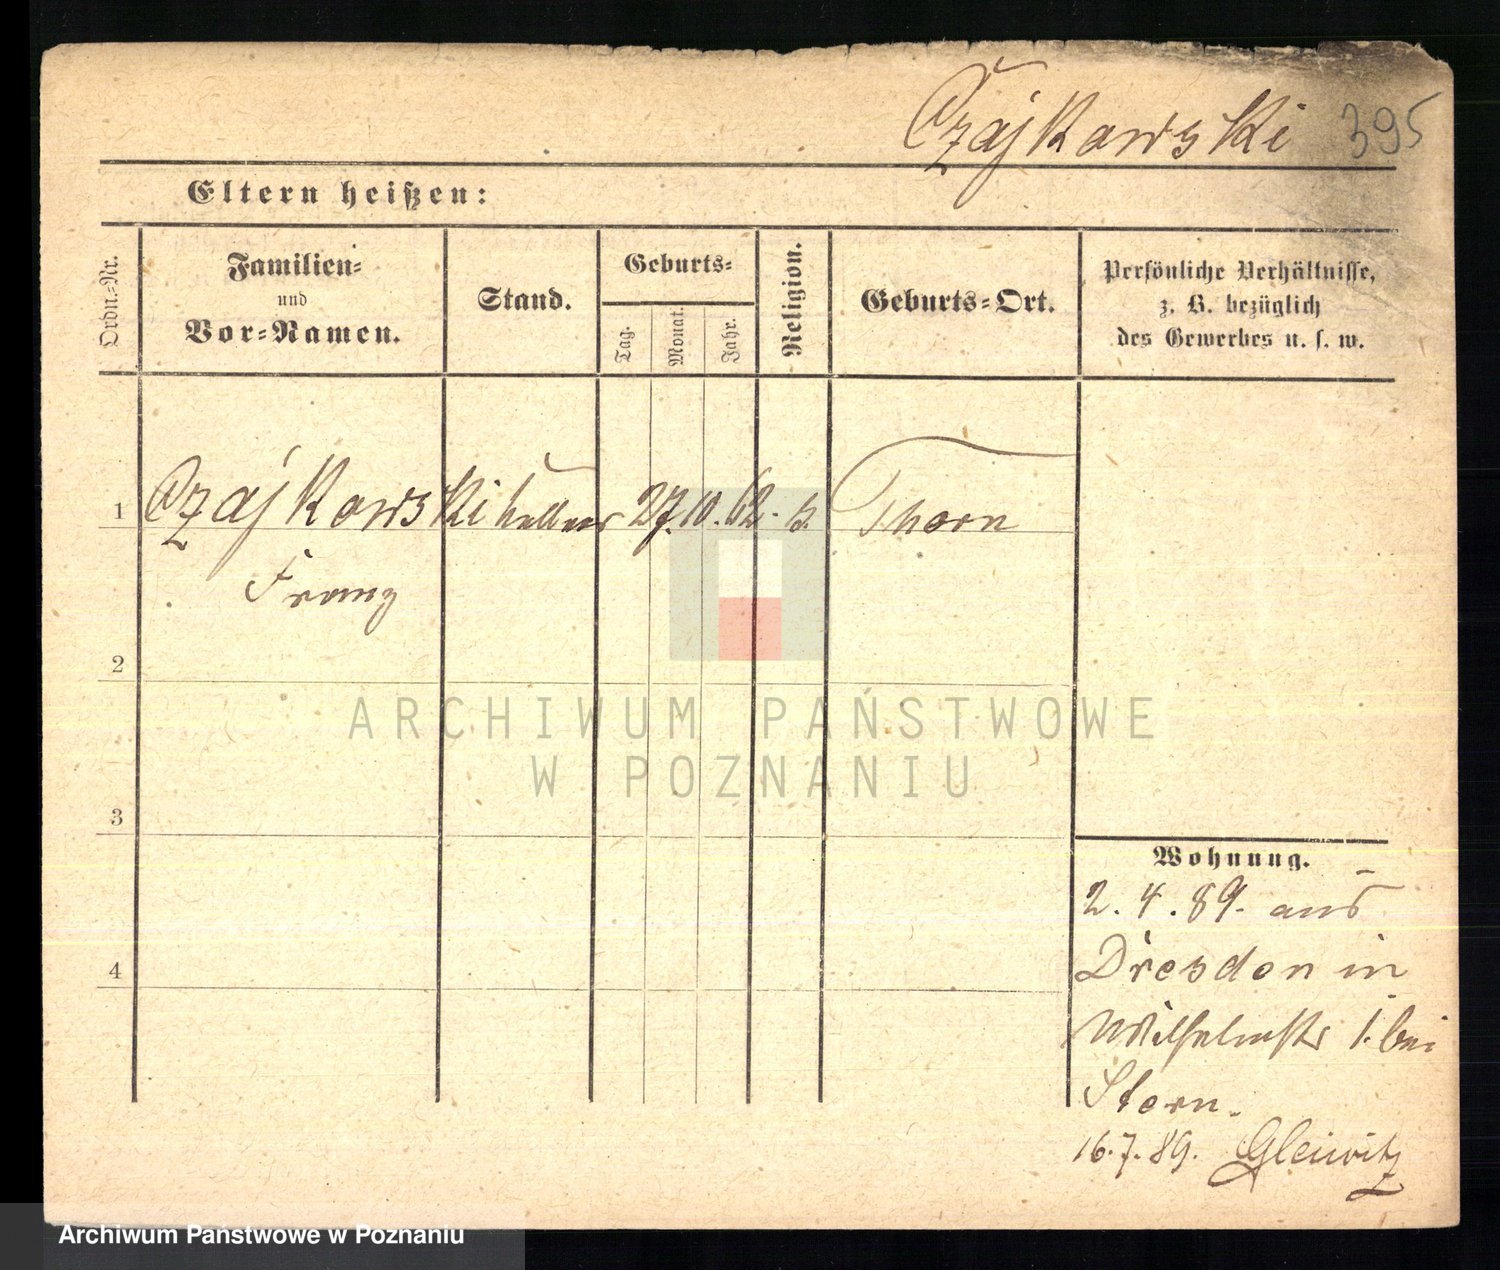 Czajkowski 395
Eltern heißen:
Ordn.-Nr.
Familien-
und
Vor-Namen.
Stand.
Geburts-
Tag.
Monat.
Jahr.
Religion.
Geburts-Ort.
Persönliche Verhältnisse,
z. B. bezüglich
des Gewerbes u. s. w.
1 Czajkowski Kellner 27. 10. 62. Thorn
Franz
2
3
4
ARCHIWUM PAŃSTWOWE
W POZNANIU
Wohnung.
2. 4. 89. aus
Dresden in
Wilhelmstr 1. bei
Stern.
16. 7. 89. Gleiwitz
Archiwum Państwowe w Poznaniu